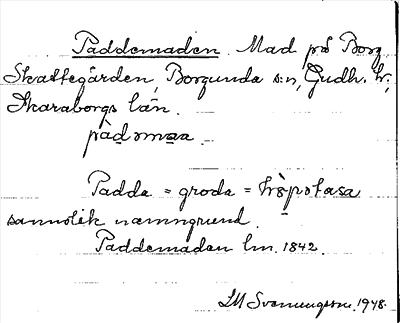 Paddemaden. Mad på Borg
Skattegården, Borgunda s:n, Gudh. h.,
Skaraborgs län.
pàdəmaa.
Padda = groda =
sannolik namngrund.
Paddemadan lm. 1842.
LM Svenungsson. 1948.